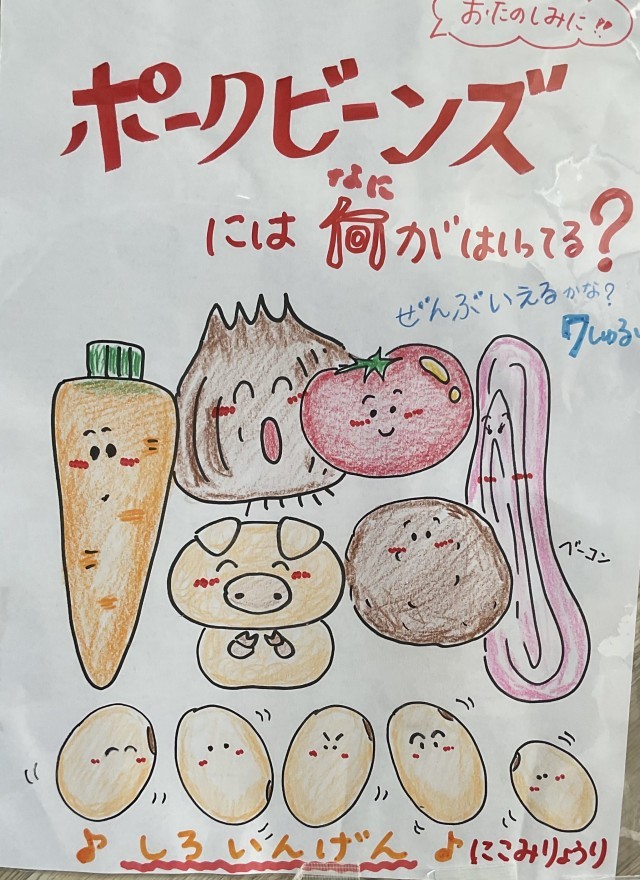 おたのしみに!!
ポークビーンズ
なに
には何がはいってる?
ぜんぶいえるかな?
7しゅるい
ベーコン
♪しろいんげん♪にこみりょうり